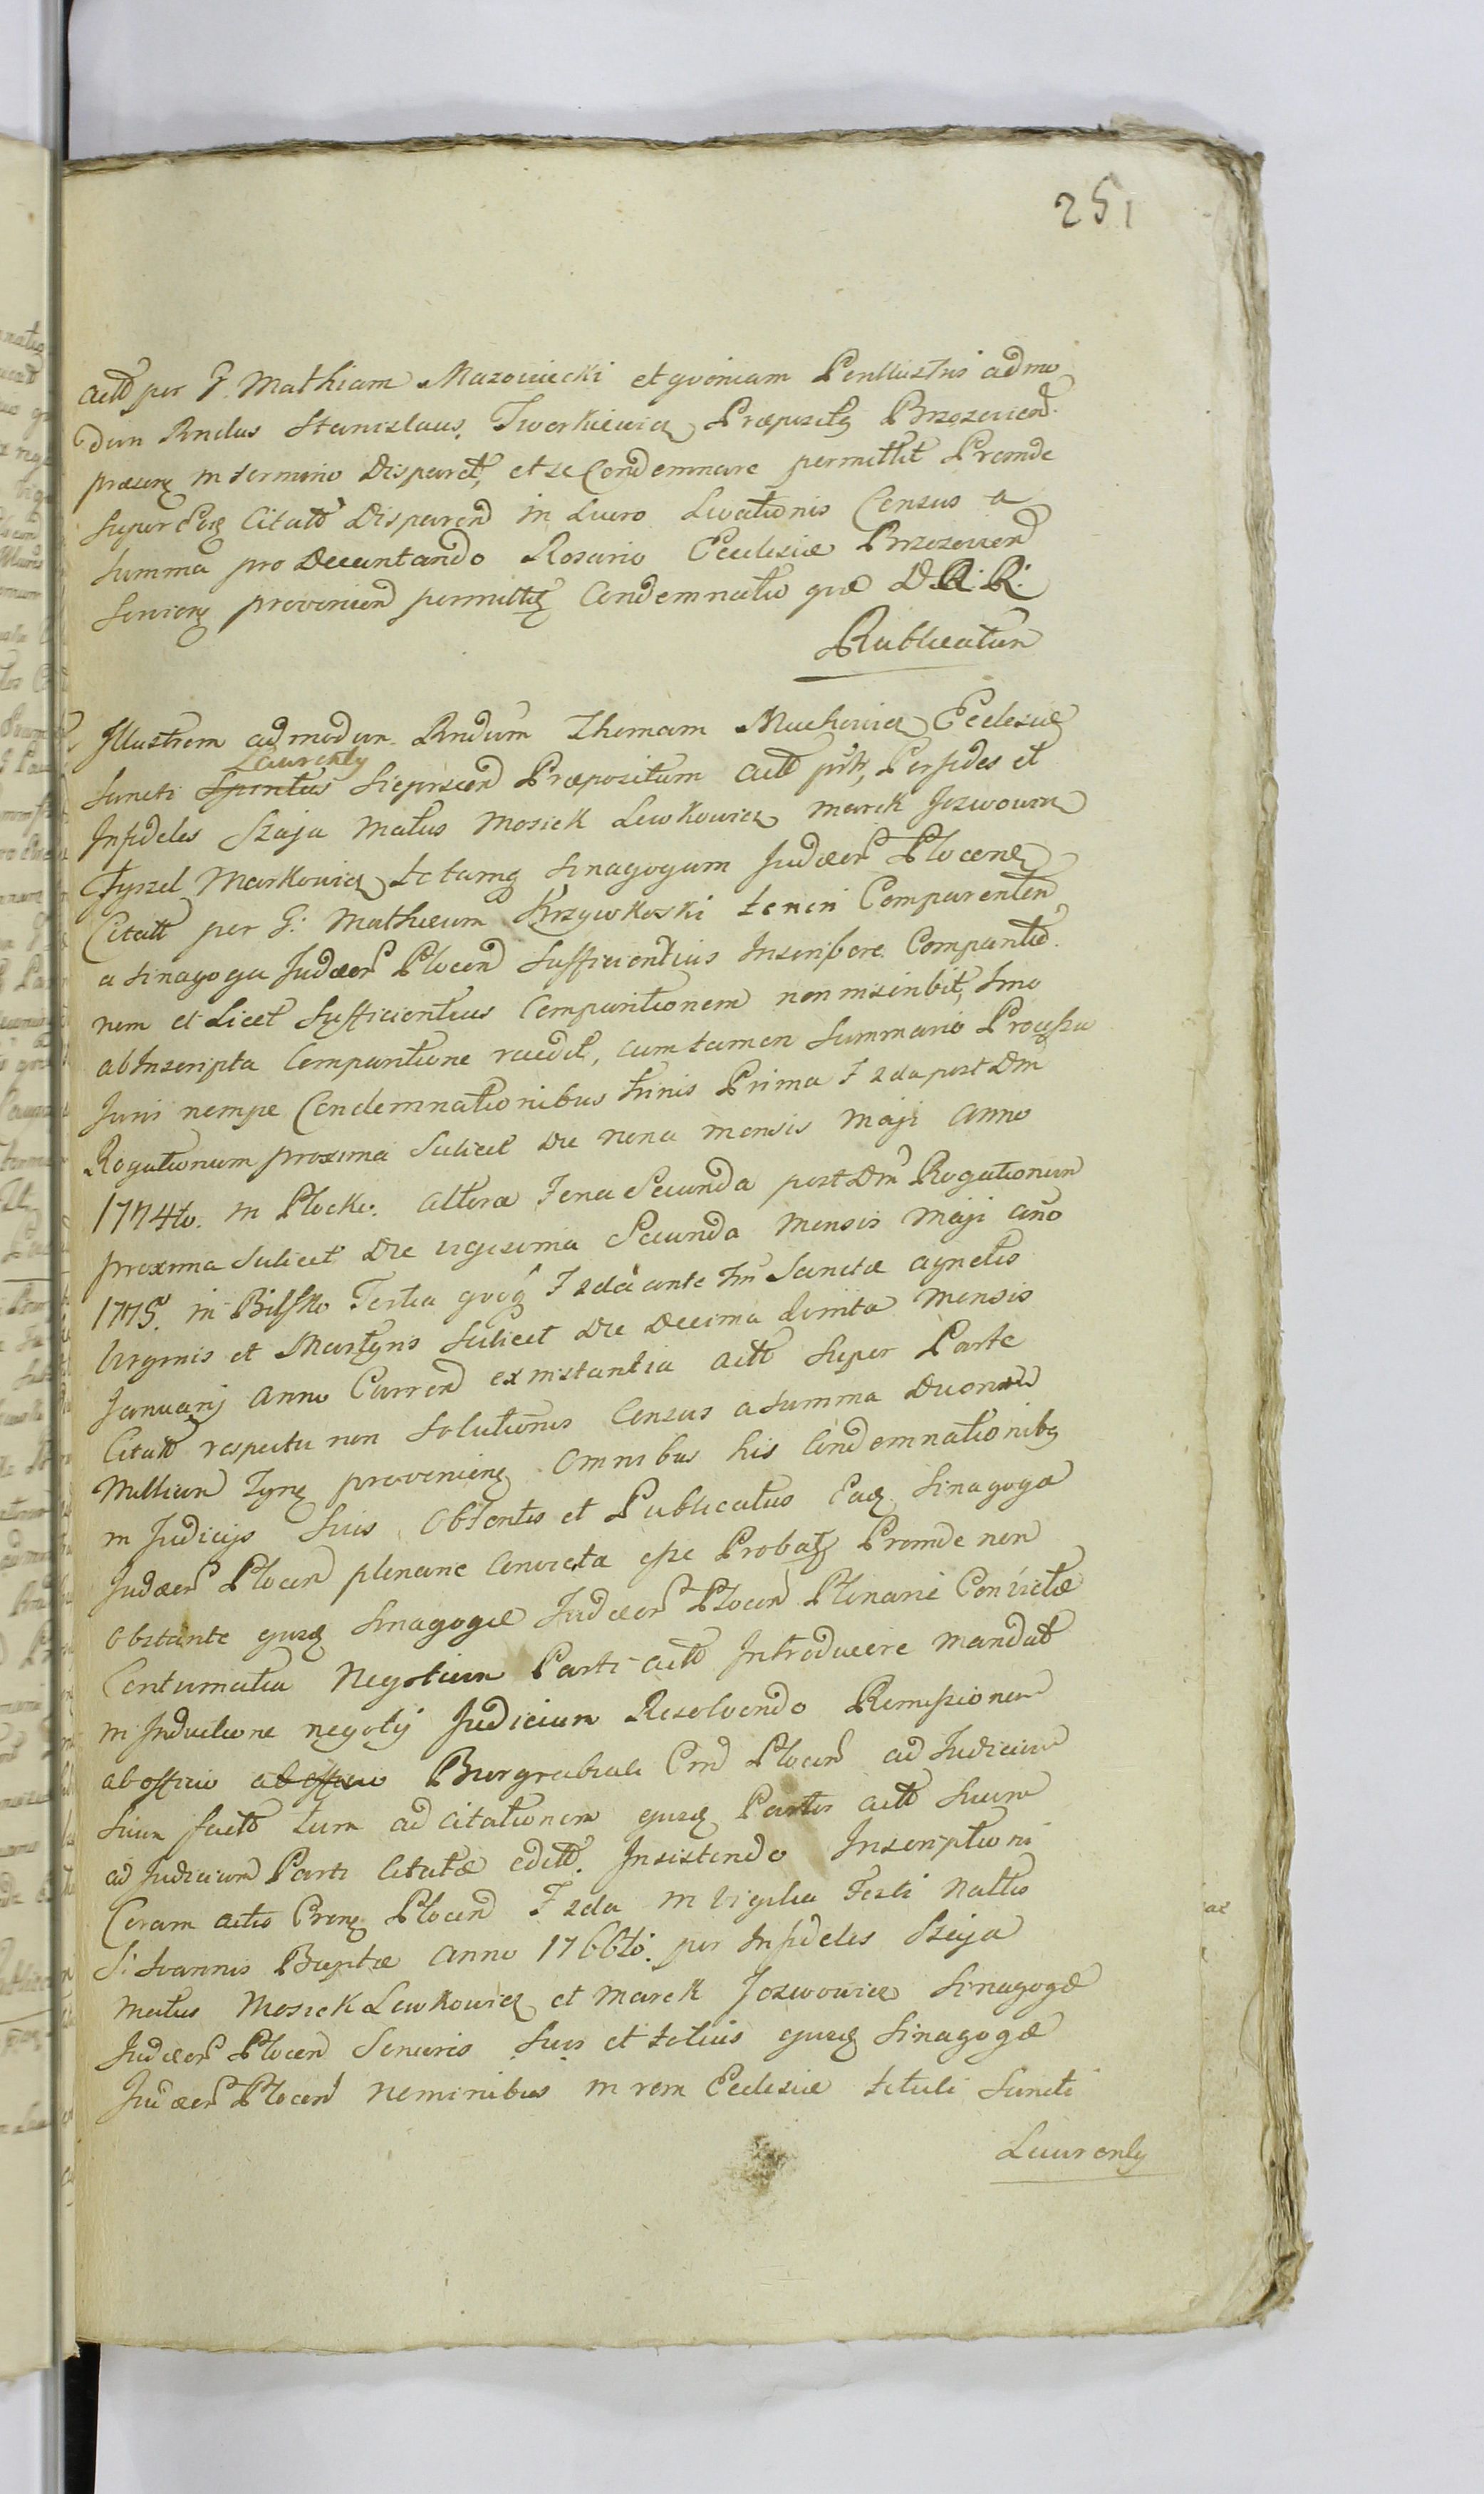 251
actt per G. Mathiam Mazowiecki et qvoniam Perillustris admo
dum Rndus Stanislaus Tworkiewicz Præpositg Brzezovien
præsens in termino Disparet, et se Condemnare permittit Proinde
super Eoq Citatt Disparen in Lucro Levationis Census a
summa pro Decantando Rosario Ecclesiæ Brzezovien
servien provenien permittg Condemnatio qvæ D. R. R.
Publicatur
Illustrem admodum Rndum Thomam Muchowicz Ecclesiæ
Laurenty
Sancti Spiritus Siepiscen Præpositum actt Perfides et
Infideles Szaja Matus Mosiek Lewkowicz Marek Jozwowicz
Markowicz totamq Sinagogam Judæor Plocen
Citatt per G. Mathæum Krzywkoski teneri Comparenten
a Sinagoga Judæor Plocen Sufficientius Inscribere Comparitio
nem et Licet Sufficientius Comparitionem non inscribit, Imo
ab Inscripta Comparitione recedit, cum tamen Summario Processu
Juris nempe Condemnationibus trinis Prima F 2da post Dm
Rogationum proxima Scilicet Die nona mensis Maji Anno
1774to. in Plocko. altera Feria Secunda post Dm Rogationum
proxima Scilicet Die vigesima Secunda Mensis Maji año
1775. in Bilsko Tertia qvoq F 2da ante Sanctæ Agnetis
Virginis et Martyris Scilicet Die Decima Qvinta Mensis
Januarij Anno Curren ex instantia actt Super Parte
Citatt respectu non Solutionis Census a Summa Duorum
Millium Tyn provenien Omnibus his Condemnationibg
in Judicijs Suis Obtentis et Publicatis Eaq Sinagoga
Judæor Plocen plenarie Convicta esse Probatg Proinde non
Obstante ejusq Sinagogæ Judæor Plocen Plenarie Convictæ
Contumatia Negotium Parti actt Introducere mandat
in Inductione negotij Judicium Resolvendo Remissionem
ab officio ab officio Burgrabiali Crri Plocen ad Judicium
Suum factt tum ad Citationem ejusq Partis actt Suum
ad Judicium Parti Citatæ editt. Insistendo Inscriptioni
Coram actis Plocen F 2da in Vigilia Festi Nattis
S. Joannis Baptæ Anno 1766to. per Infideles Szaja
Matus Mosiek Lewkowicz et Marek Jozwowicz Sinagogæ
Judæor Plocen Senioris Suis et totius ejusq Sinagogæ
Judæor Plocen nominibus in rem Ecclesiæ tituli Sancti
Laurenty